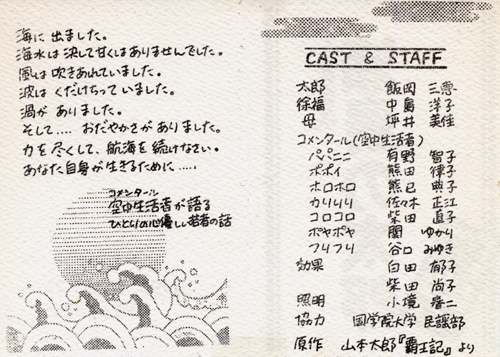 海に出ました。
海水は決して甘くはありませんでした。
風は吹きあれていました。
波はくだけちっていました。
渦がありました。
そして‥‥おだやかさがありました。
力を尽くして、航海を続けなさい。
あなた自身が生きるために‥‥‥
コメンタール
空中生活者が語る
ひとりの心優しい若者の話
CAST & STAFF
太郎 飯岡 三
徐福 中島 洋子
母 坪井 美佳
コメンタール(空中生活者)
パパニニ 有野 智子
ポポイ 熊田 律子
ホロホロ 熊已 典子
カリリリ 佐々木 正江
コロコロ 柴田 直子
ポヤポヤ 関 ゆかり
フリフリ 谷口 みゆき
効果 白田 郁子
柴田 尚子
照明 小境 香二
協力 国学院大学 民謡部
原作 山本太郎『覇王記』より